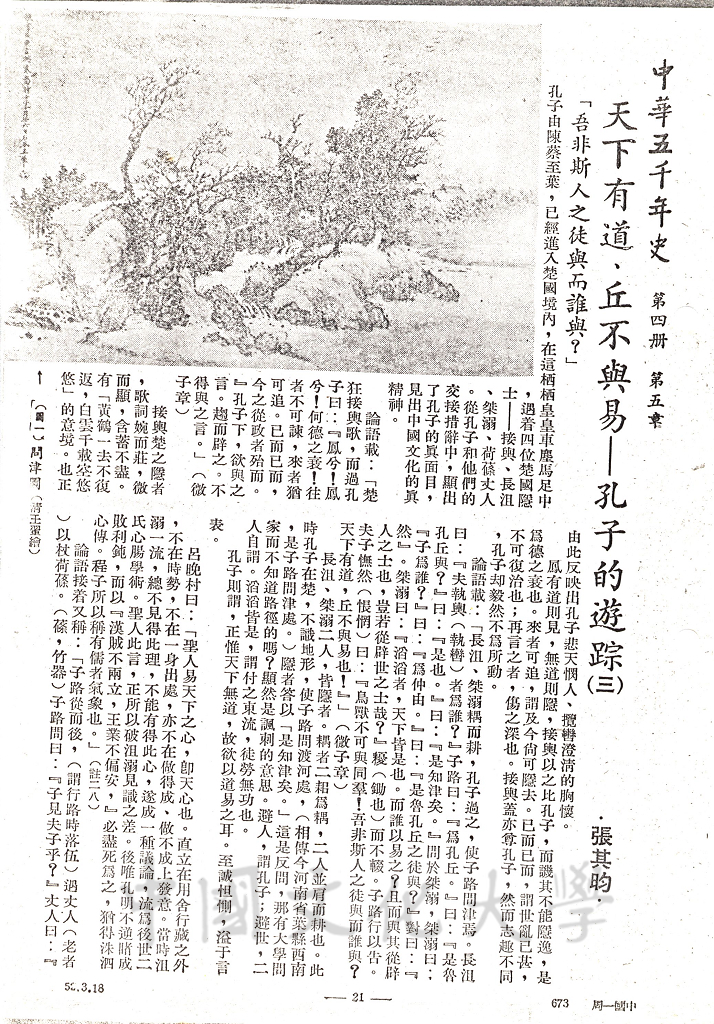 中華五千年史　第四册　第五章
天下有道、丘不與易—孔子的遊踪(三)
·張其昀·
「吾非斯人之徒與而誰與？」
孔子由陳蔡至葉，已經進入楚國境內，在這栖栖皇皇車塵馬足中
，遇着四位楚國隱
士——接輿、長沮
、桀溺、荷蓧丈人
。從孔子和他們的
交接措辭中，顯出
了孔子的眞面目，
見出中國文化的眞
精神。
論語載：「楚
狂接輿歌，而過孔
子曰：『鳳兮！鳳
兮！何德之衰！往
者不可諫，來者猶
可追。已而已而，
今之從政者殆而。
『孔子下，欲與之
言。趨而辟之。不
得與之言。」（微
子章）
接輿楚之隱者
，歌詞婉而莊，微
而顯，含蓄不盡。
有「黃鶴一去不復
返，白雲千載空悠
悠」的意境。也正
↑（圖一）問津圖（清王翬繪）
由此反映出孔子悲天憫人、攬轡澄淸的胸懷。
鳳有道則見，無道則隱，接輿以之比孔子，而譏其不能隱逸，是
爲德之衰也。來者可追，謂及今尙可隱去。已而已而，謂世亂已甚，
不可復治也；再言之者，傷之深也。接輿蓋亦尊孔子，然而志趣不同
，孔子却毅然不爲所動。
論語載：「長沮、桀溺耦而耕，孔子過之，使子路問津焉。長沮
曰：『夫執輿（執轡）者爲誰？』子路曰：『爲孔丘。』曰：『是魯
孔丘與？』曰：『是也。』曰：『是知津矣。』問於桀溺，桀溺曰：
『子爲誰？』曰：『爲仲由。』曰：『是魯孔丘之徒與？』對曰：『
然』。桀溺曰：『滔滔者，天下皆是也。而誰以易之？且而與其從辟
人之士也，豈若從辟世之士哉？』耰（鋤也）而不輟。子路行以告。
夫子憮然（悵惘）曰：『鳥獸不可與同羣！吾非斯人之徒與而誰與？
天下有道，丘不與易也！』」（微子章）
長沮、桀溺二人，皆隱者。耦者二耜爲耦，二人並肩而耕也。此
時孔子在楚，不識地形，使子路問渡河處，（相傳今河南省葉縣西南
，是子路問津處。）隱者答以「是知津矣。」這是反問，那有大學問
家而不知道路徑的嗎？顯然是諷刺的意思。避人，謂孔子；避世，二
人自謂。滔滔皆是，謂付之東流，徒勞無功也。
孔子則謂，正惟天下無道，故欲以道易之耳。至誠怛惻，溢于言
表。
呂晚村曰：「聖人易天下之心，卽天心也。直立在用舍行藏之外
，不在時勢，不在一身出處，亦不在做得成、做不成上發意。當時沮
溺一流，總不見得此理，不能有得此心，遂成一種議論，流爲後世二
氏心腸學術。聖人此言，正所以破沮溺見識之差。後唯孔明不逆睹成
敗利鈍，而以『漢賊不兩立，王業不偏安，』必盡死爲之，猶得洙泗
心傳。程子所以稱有儒者氣象也。」（註二八）
論語接着又稱：「子路從而後，（謂行路時落伍）遇丈人（老者
）以杖荷蓧。（蓧，竹器）子路問曰：『子見夫子乎？』丈人曰：『
52.3.18
— 21 —
673
中國一周